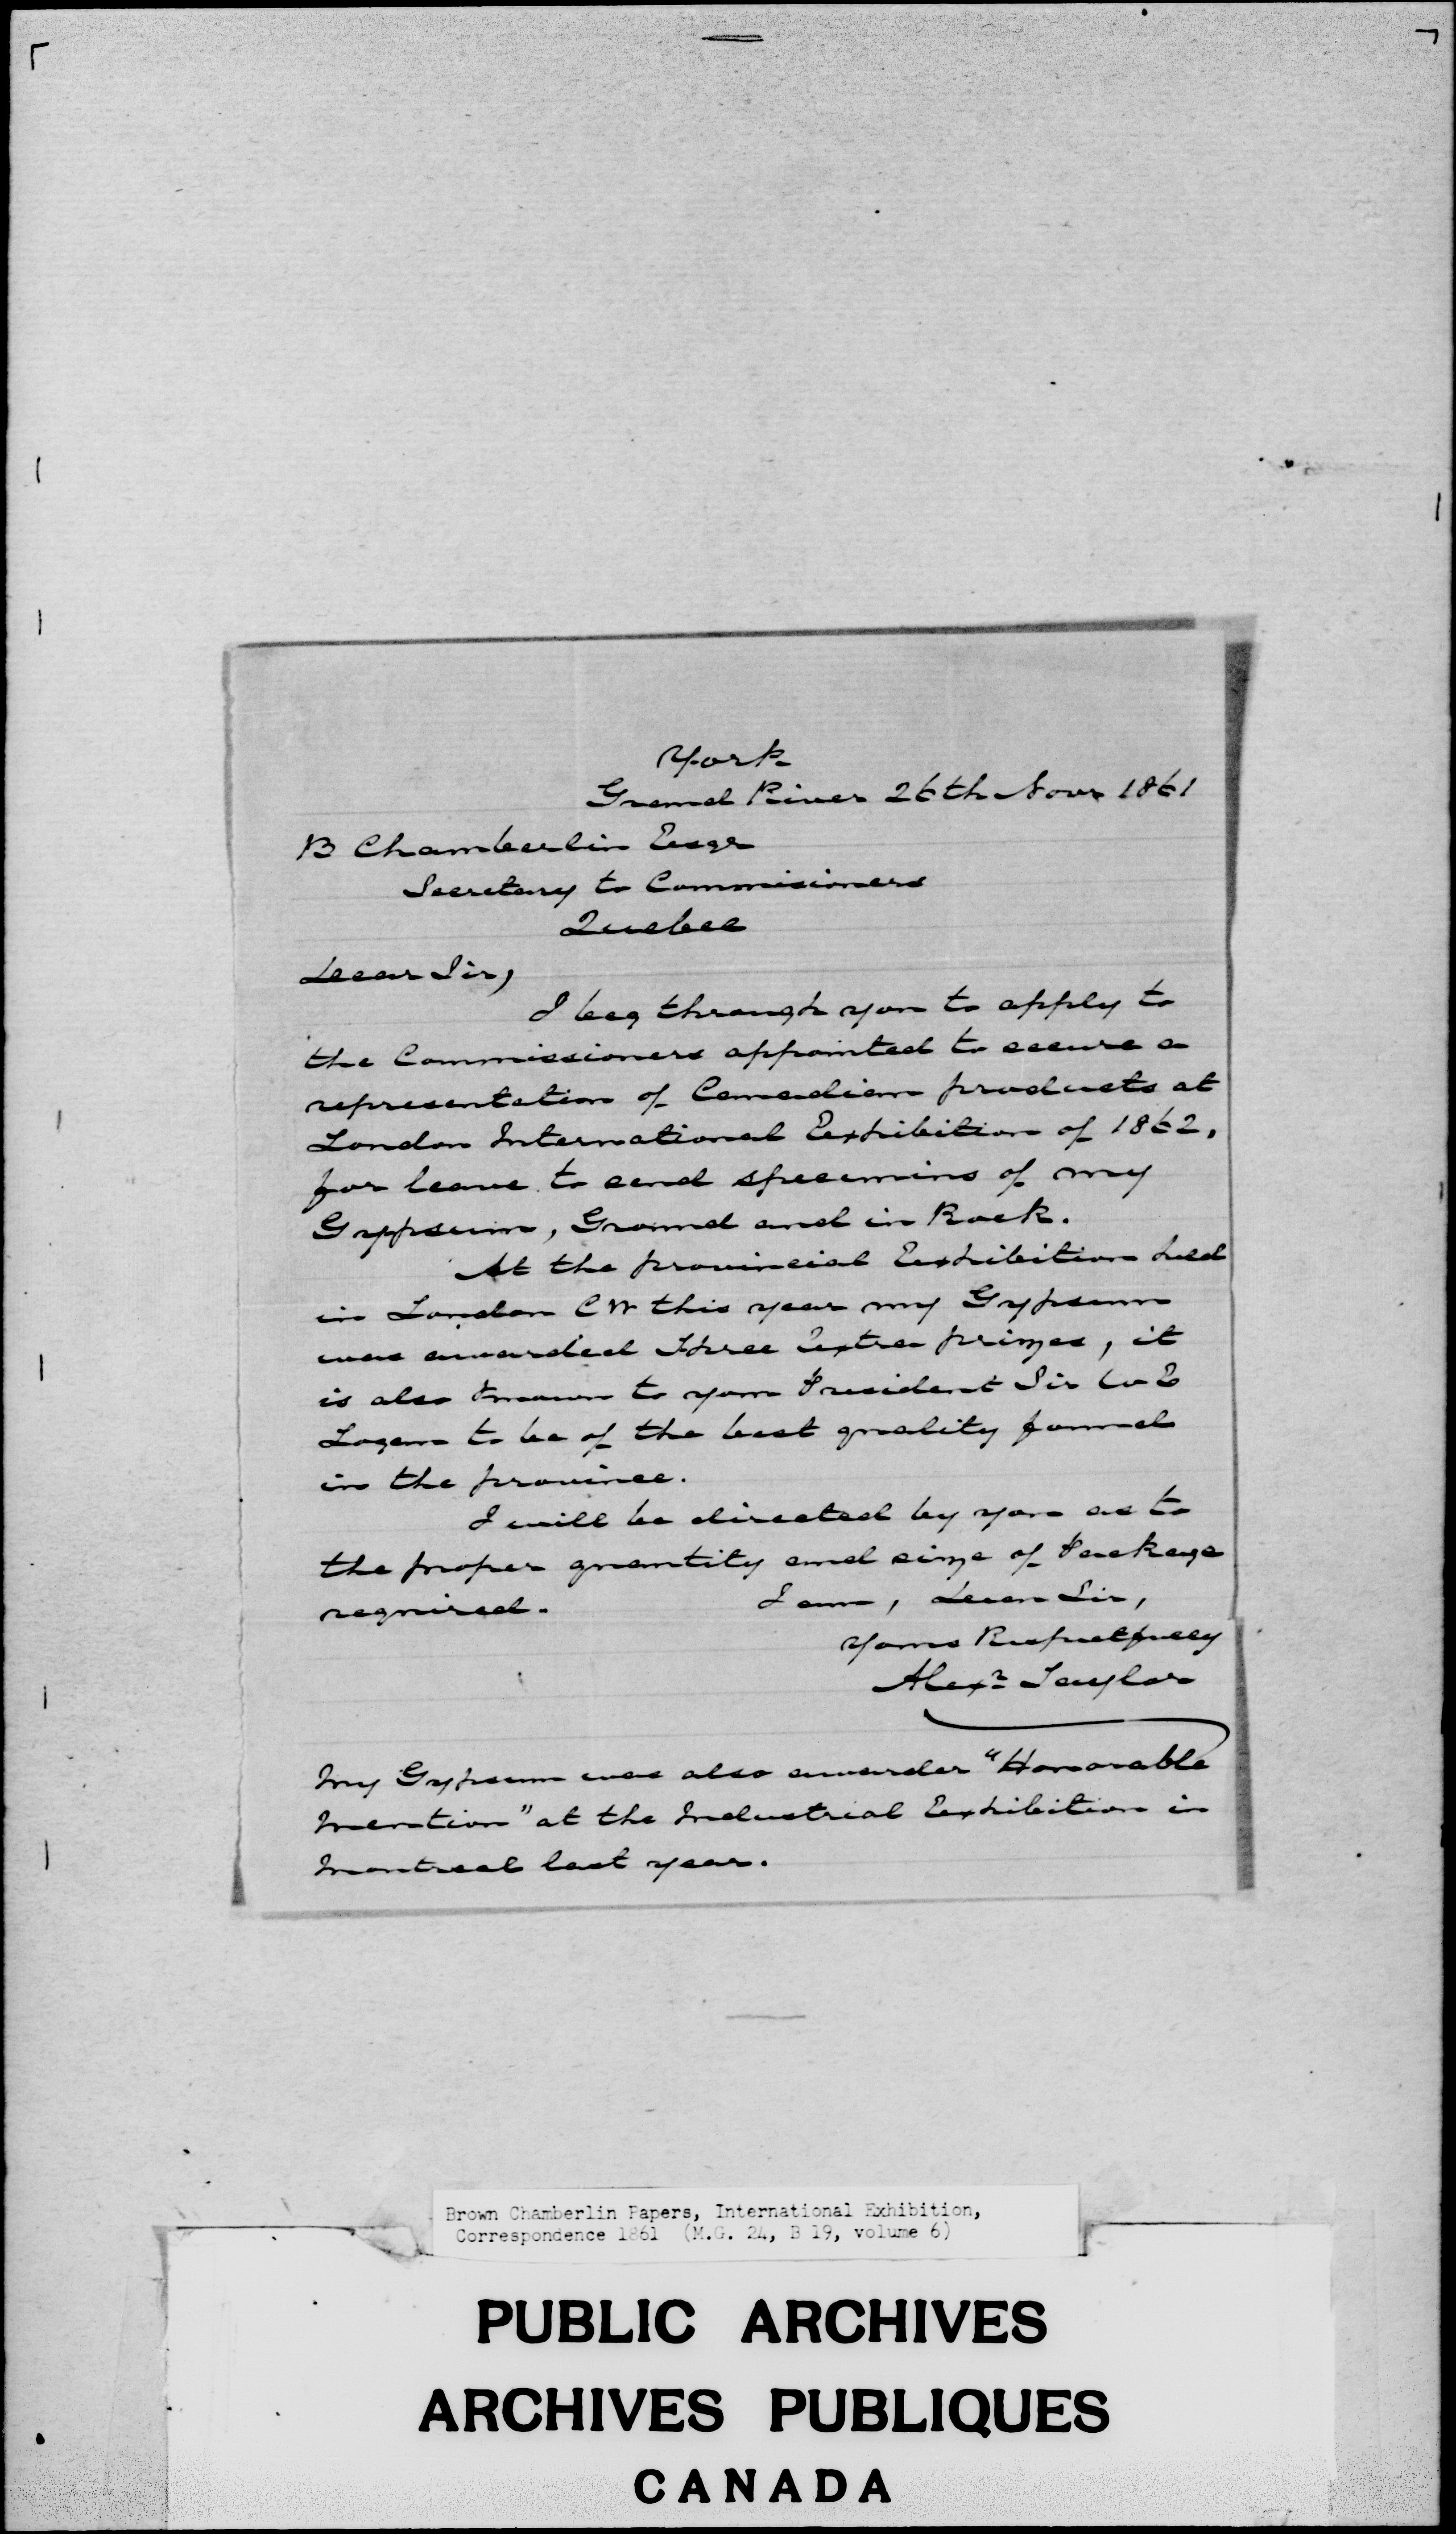 York
Grand River 26th Novr 1861
B Chamberlin Esqr
Secretary to Commisioners
Quebec
Dear Sir,
I beg through you to apply to
the Commissioners appointed to secure a
representation of Canadian products at
London International Exhibition of 1862,
for leave to send specimins of my
Gyppsum, Ground and in Rock.
At the provincial Exhibition held
in London CW this year my Gypsum
was awarded three Extra prizes, it
is also known to your President Sir W E
Logan to be of the best quality found
in the province.
I will be directed by you as to
the proper quantity and size of Package
required. I am, Dear Sir,
Yours Respectfully
Alexr Taylor
My Gypsum was also awarder "Honorable
Mention" at the Industrial Exhibition in
Montreal last year.
Brown Chamberlin Papers, International Exhibition,
Correspondence 1861 (M.G. 24, B 19, volume 6)
PUBLIC ARCHIVES
ARCHIVES PUBLIQUES
CANADA